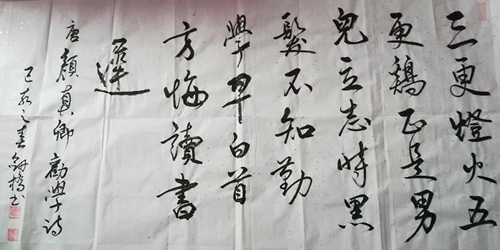 三更燈火五
更鷄正是男
兒立志時黑
髮不知勤
學早白首
方悔讀書
遲
唐顏真卿勸學詩
己亥之春